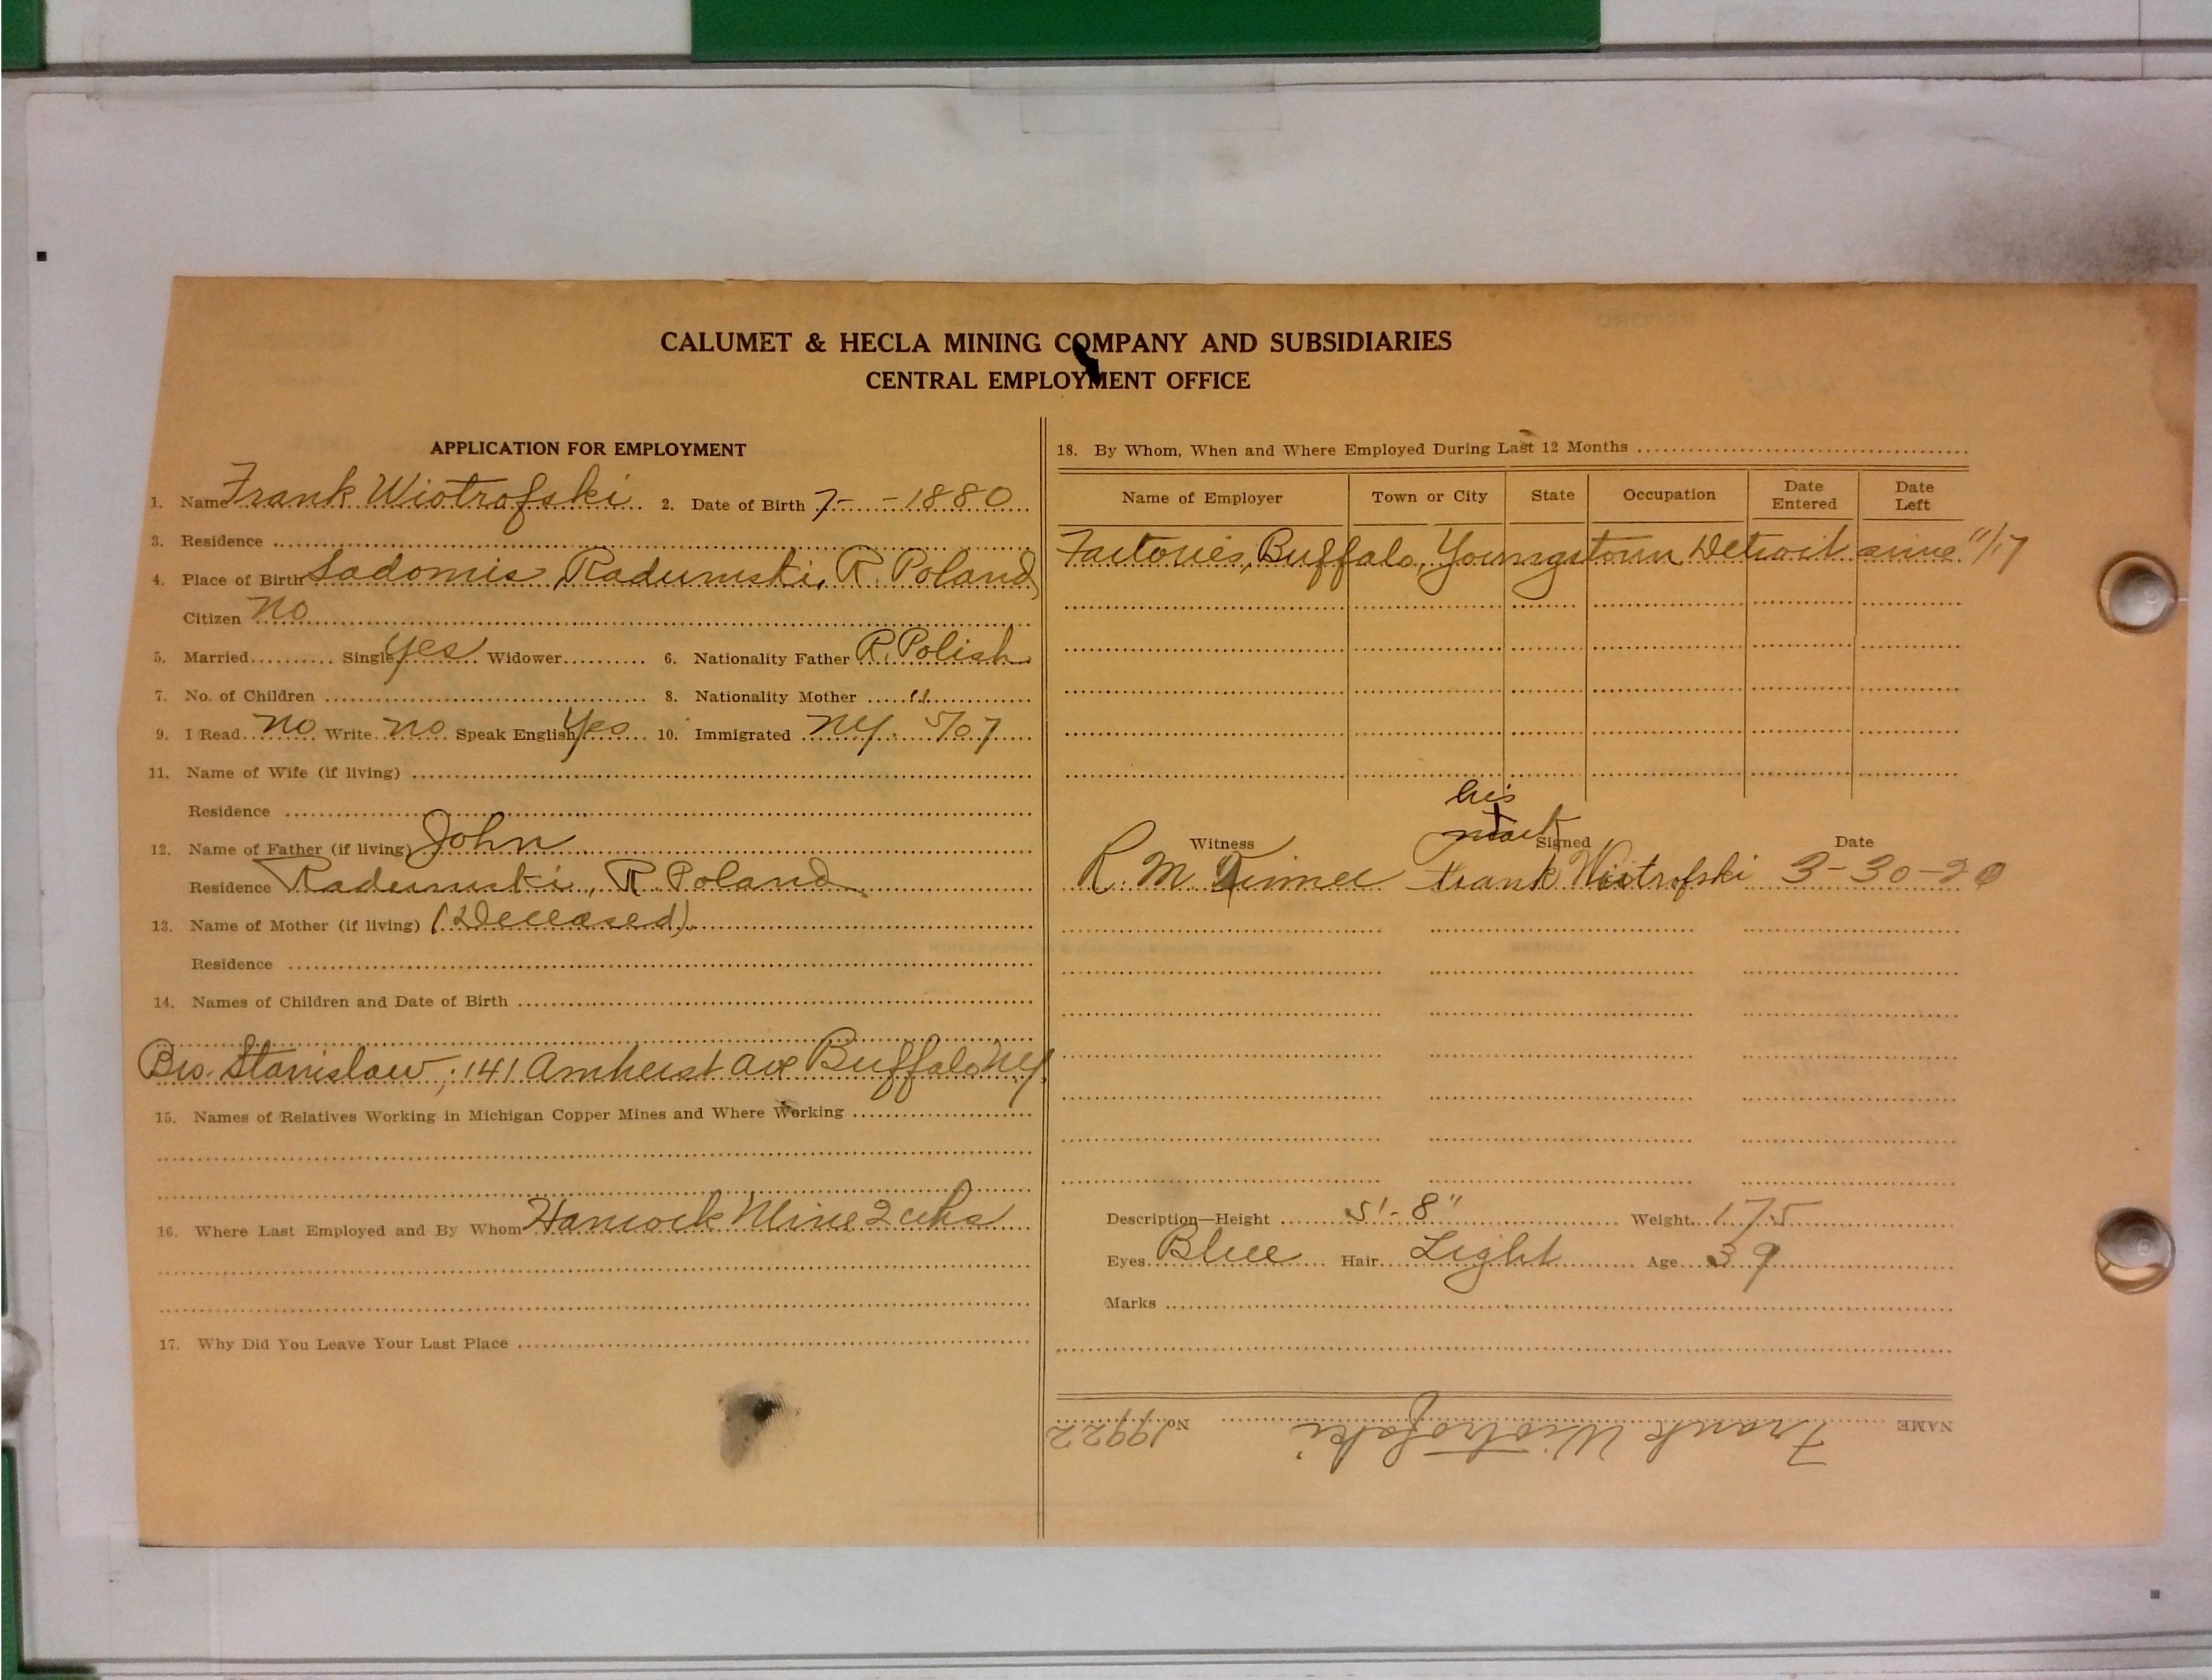 CALUMET & HECLA MINING COMPANY AND SUBSIDIARIES
CENTRAL EMPLOYMENT OFFICE
APPLICATION FOR EMPLOYMENT
1. Name Frank Wiotrofski 2. Date of Birth 7- -1880
3. Residence
4. Place of Birth Sadomis Radumski, R. Poland
Citizen No
5. Married Single Yes Widower 6. Nationality Father R. Polish
7. No. of Children 8. Nationality Mother "
9. I Read No Write No Speak English Yes 10. Immigrated NY. 5/07
11. Name of Wife (if living)
Residence
12. Name of Father (if living) John
Residence Radumski, R Poland
13. Name of Mother (if living) (Deceased)
Residence
14. Names of Children and Date of Birth
Bro. Stanislaw, 141 Amherst Ave Buffalo NY.
15. Names of Relatives Working in Michigan Copper Mines and Where Working
16. Where Last Employed and By Whom Hancock Mine 2
17. Why Did You Leave Your Last Place
18. By Whom, When and Where Employed During Last 12 Months
Name of Employer Town or City State Occupation Date Entered Date Left
Factories, Buffalo, Youngstown Detroit 11/17
his
mark
Witness Signed Date
R. M. Frank Wiotrofski 3-30-20
Description—Height 5'-8" Weight 175
Eyes Blue Hair Light Age 39
Marks
NAME Frank Wiotrofski No. 19922